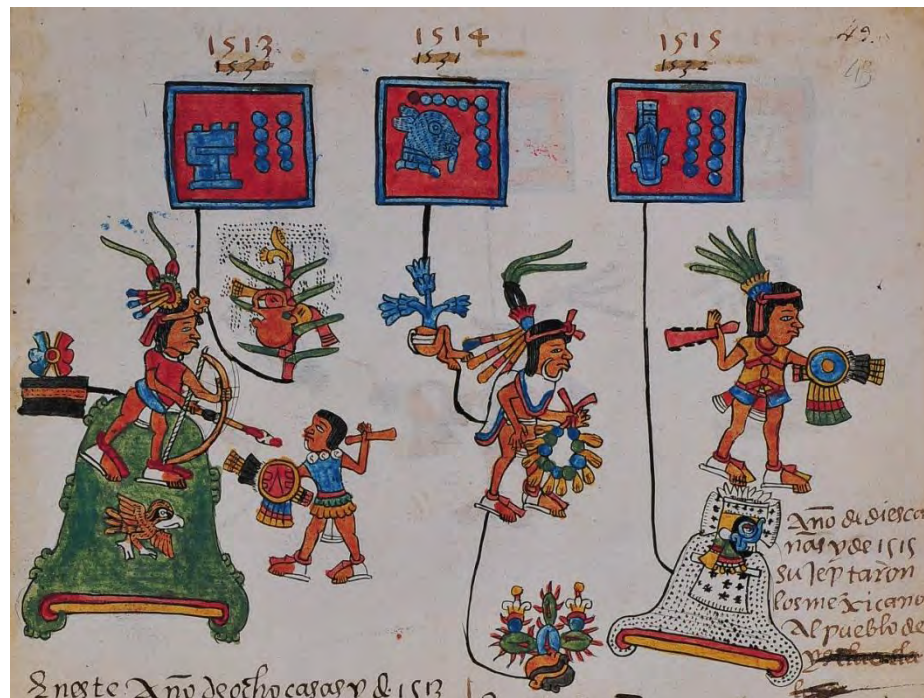 1513
1530
1514
1531
1515
1532
49.
43
Año de diesca
ñas y de 1515
sujeptaron
los mexicano
Al pueblo de
En este Año de ocho casas y de 1513